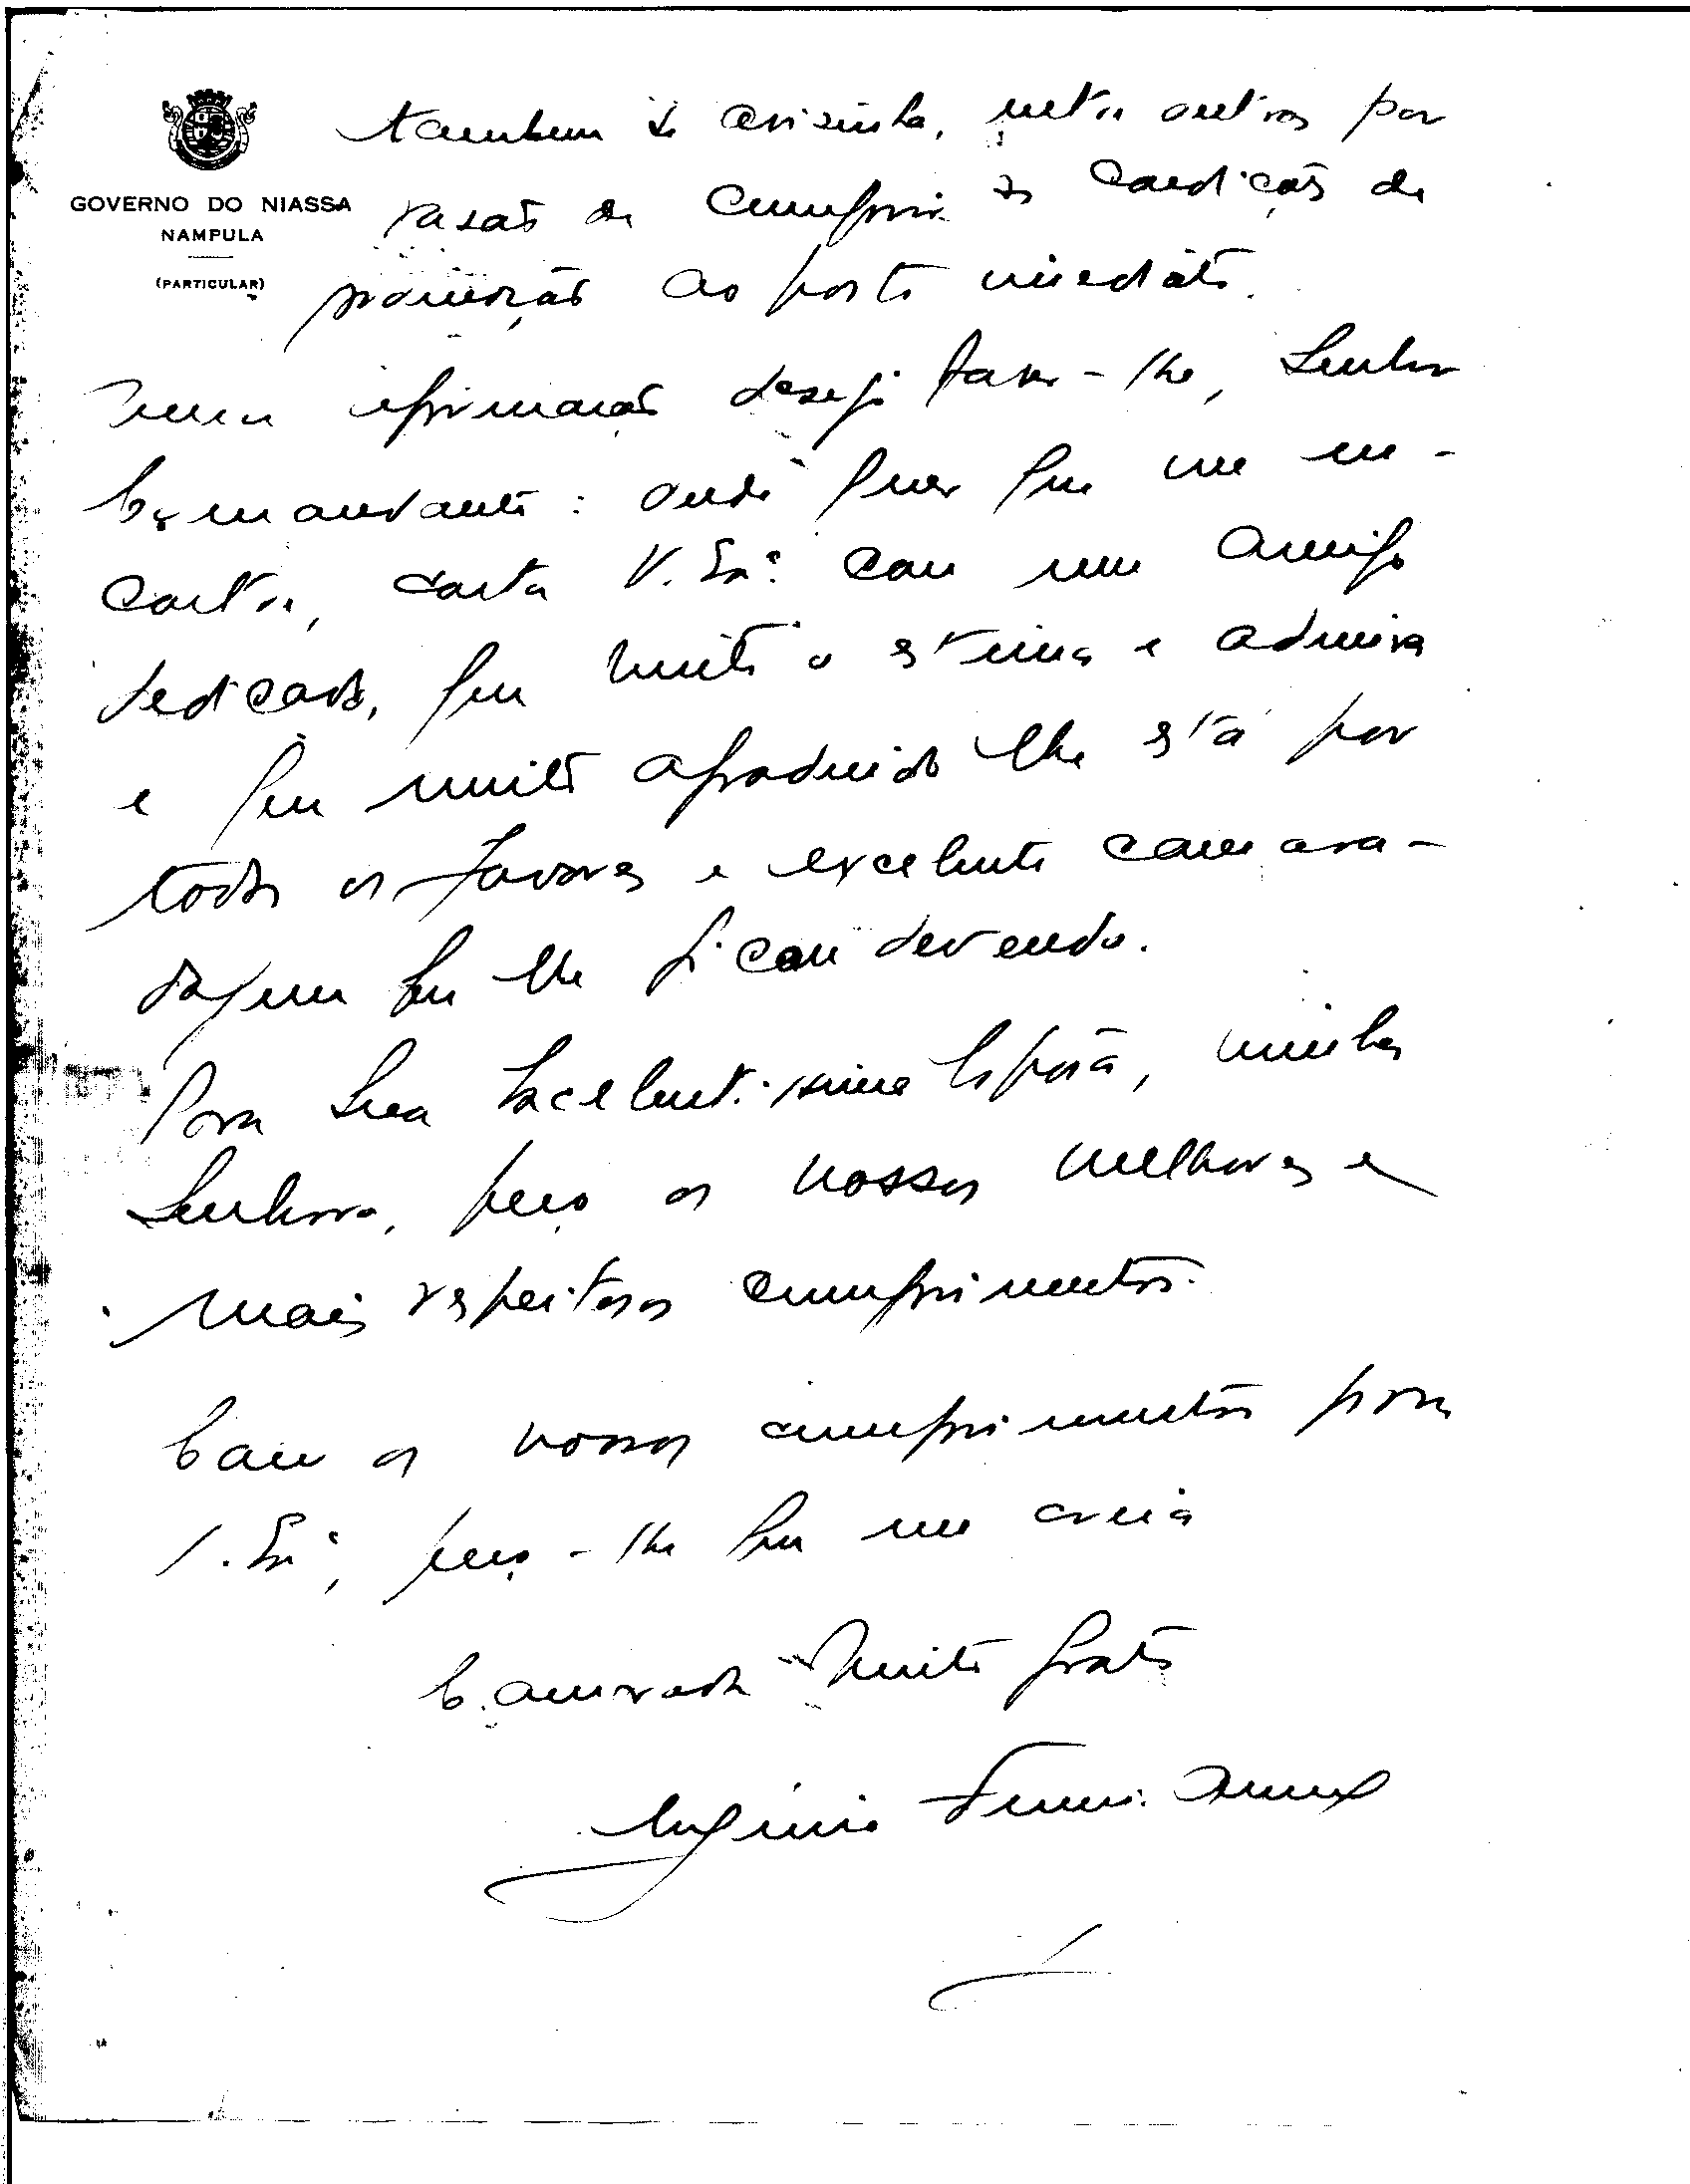 GOVERNO DO NIASSA
NAMPULA
(PARTICULAR)
tambem se avisinha, entre outras por
razão de cumprir as condições de
promoção ao posto imediato.
Uma afirmação desejo fazer-lhe, Senhor
Comandante: onde quer que me en-
contre, conta V. Exª com um amigo
dedicado, que muito o estima e admira
e que muito agradecido lhe está por
todos os favores e excelente camara-
dagem que lhe ficou devendo.
Para Sua Excelentissima Esposa, minha
Senhora, peço os nossos melhores e
mais respeitosos cumprimentos.
Com os nossos cumprimentos para
V. Exª, peço-lhe que me creia
Camarada muito grato
Eugénio Ferreira